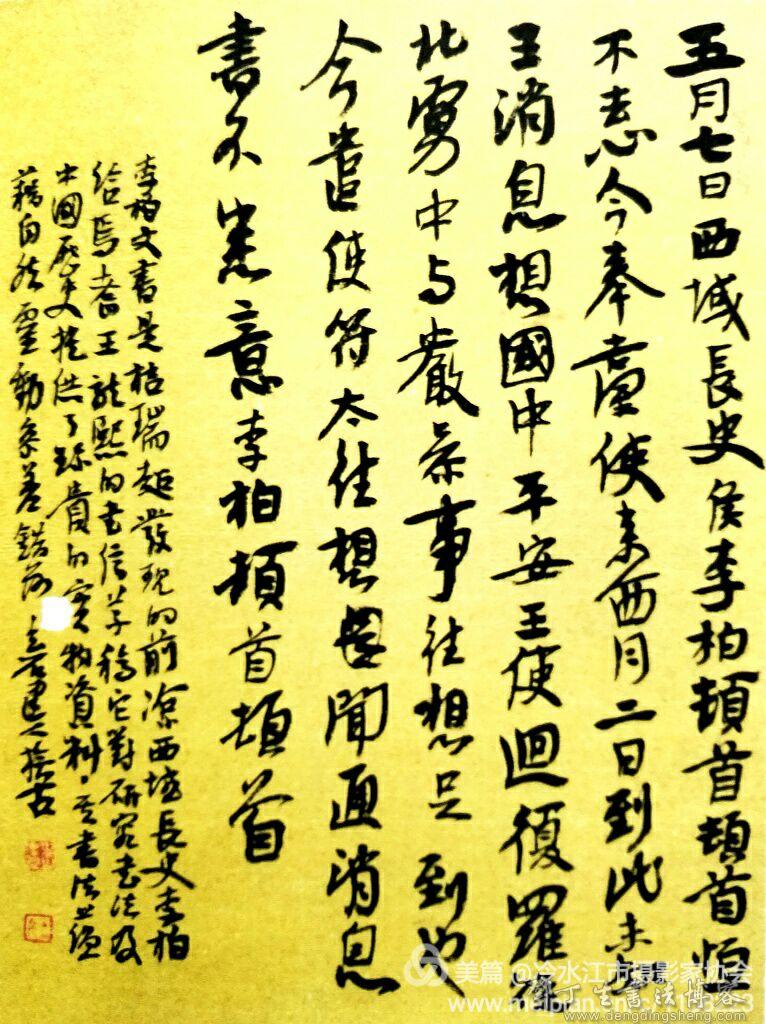 五月七日西域長史侯李柏頓首頓首恒
不忘今奉臺使来西月二日到此未知
王消息想國中平安王使迴復羅
北虜中与嚴参事往想是到也
今遣使符太往想聞通消息
書不悉意李柏頓首頓首
李柏文書是桔瑞超發現的前涼西域長史李柏
给焉耆王龍熙的书信草稿它對研究书法及
中國歷史提供了珍貴的實物資料其書法
藉自然靈動参差錯落
美篇@冷水江市摄影家协会
www.meipian.cn
鄧丁生書法博客
www.dengdingsheng.com